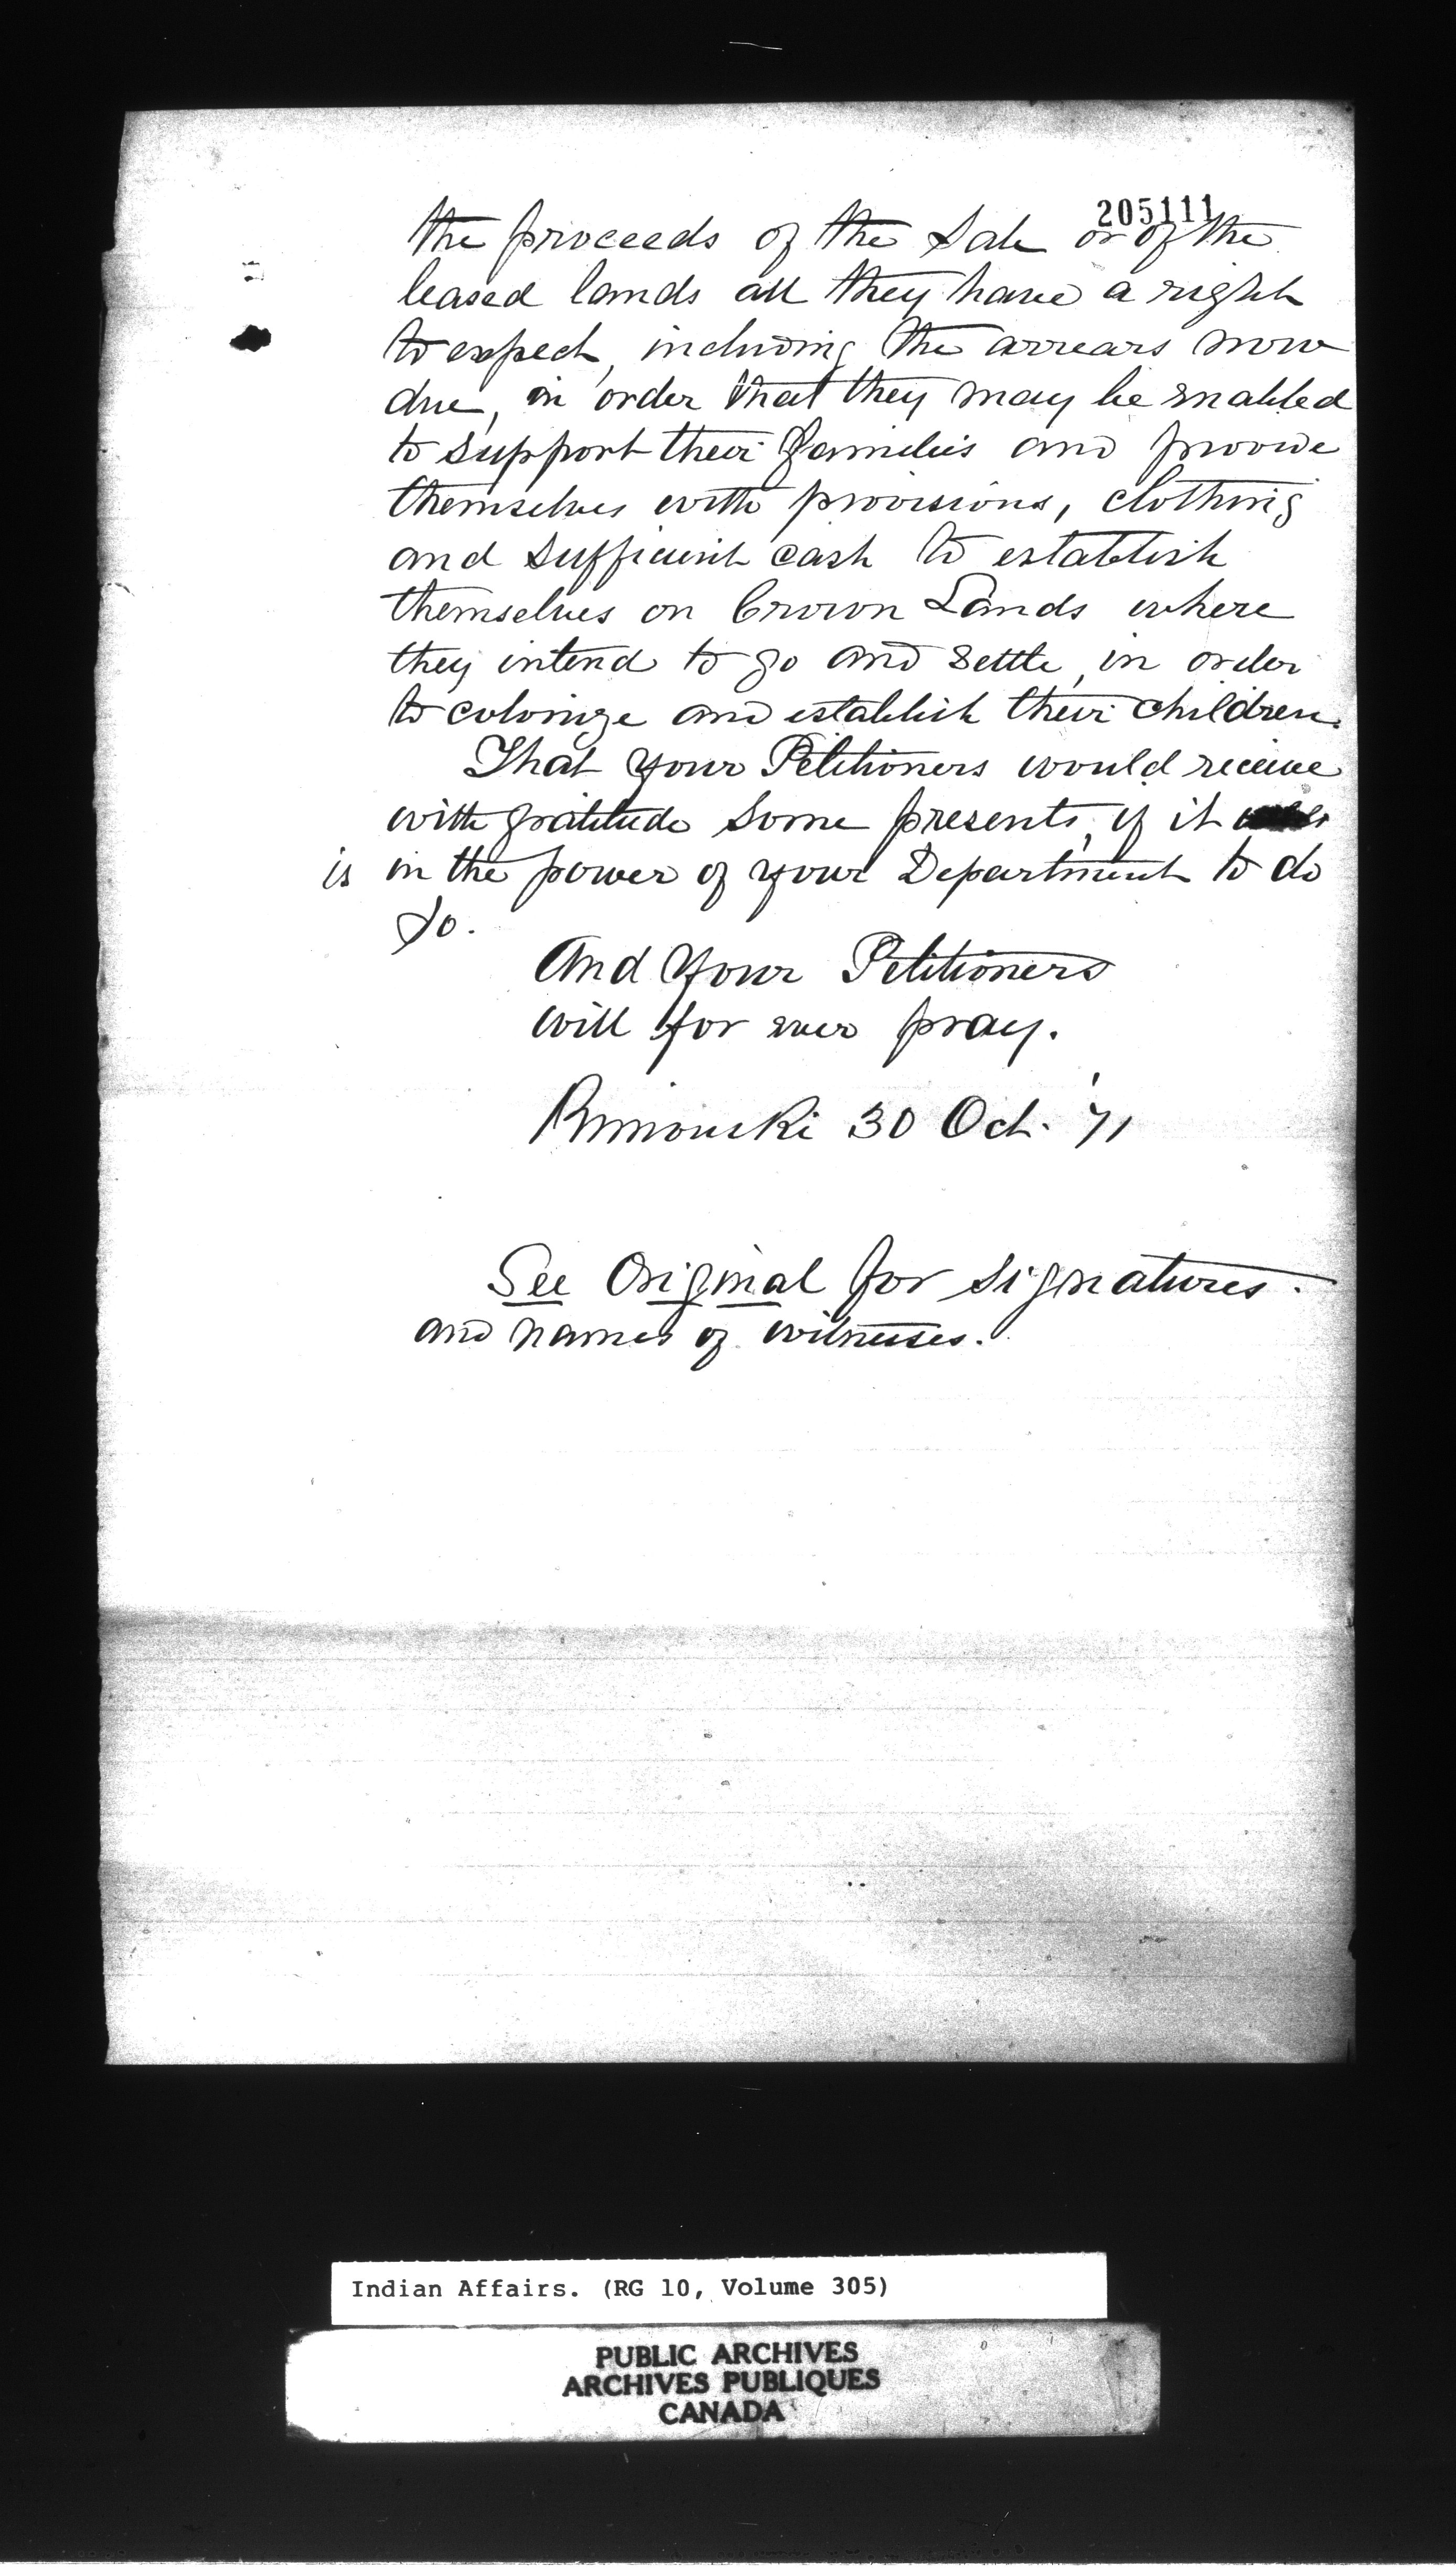 205111
the proceeds of the Sale or of the
leased lands all they have a right
to expect, including the arrears now
due, in order that they may be enabled
to support their families and provide
themselves with provisions, clothing
and sufficient cash to establish
themselves on Crown Lands where
they intend to go and settle, in order
to colonize and establish their children.
That your Petitioners would receive
with gratitude some presents, if it
is in the power of your Department to do
so.
And your Petitioners
will for ever pray.
Rimouski 30 Oct. '71
See Original for signatures.
and names of witnesses.
Indian Affairs. (RG 10, Volume 305)
PUBLIC ARCHIVES
ARCHIVES PUBLIQUES
CANADA